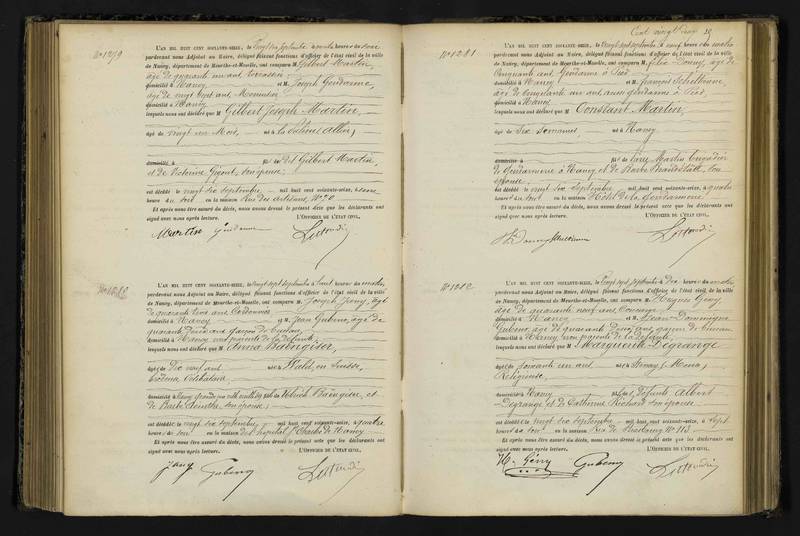 Nº 1279
L'AN MIL HUIT CENT SOIXANTE-SEIZE, le Vingt Six Septembre à onze heures du soir
pardevant nous Adjoint au Maire, délégué faisant fonctions d'officier de l'état civil de la ville
de Nancy, département de Meurthe-et-Moselle, ont comparu M. Gilbert Martin,
âgé de quarante un ans
domicilié à Nancy et M. Joseph Gendarme,
âgé de vingt sept ans, Menuisier
domicilié à Nancy
lesquels nous ont déclaré que M Gilbert Joseph Martin,
âgé de vingt un Mois, né à
domicilié à fils de dit Gilbert Martin,
et de Victorine Gigout, son épouse;
est décédé le vingt six septembre, mil huit cent soixante-seize, à
heures du soir en la maison Rue des artisans, Nº 20
Et après nous être assuré du décès, nous avons dressé le présent acte que les déclarants ont
signé avec nous après lecture. L'OFFICIER DE L'ÉTAT CIVIL,
Martin Gendarme
Nº 1280
L'AN MIL HUIT CENT SOIXANTE-SEIZE, le Vingt sept septembre à huit heures du matin,
pardevant nous Adjoint au Maire, délégué faisant fonctions d'officier de l'état civil de la ville
de Nancy, département de Meurthe-et-Moselle, ont comparu M. Joseph Jany, âgé
de quarante trois ans Cordonnier
domicilié à Nancy et M. Jean Gubeno, âgé de
quarante deux ans garçon de bureau,
domicilié à Nancy non parents de la défunte
lesquels nous ont déclaré que M Anna
âgée de Dix neuf ans née à Wald, en Suisse,
domiciliée à Nancy fille de Ulrich et
de son épouse;
est décédée le vingt six septembre, mil huit cent soixante-seize, à quatre
heures du soir en la maison dite hôpital St Charles de Nancy
Et après nous être assuré du décès, nous avons dressé le présent acte que les déclarants ont
signé avec nous après lecture. L'OFFICIER DE L'ÉTAT CIVIL,
Jany Gubeno
Cent vingt cinq
Nº 1281
L'AN MIL HUIT CENT SOIXANTE-SEIZE, le Vingt sept septembre à neuf heures du matin
pardevant nous Adjoint au Maire, délégué faisant fonctions d'officier de l'état civil de la ville
de Nancy, département de Meurthe-et-Moselle, ont comparu M. Félix Danny, âgé de
Cinquante ans, Gendarme à Pied
domicilié à Nancy et M. François
âgé de Cinquante un ans, aussi gendarme à Pied,
domicilié à Nancy
lesquels nous ont déclaré que M Constant Martin,
âgé de Six semaines, né à Nancy
domicilié à fils de Martin brigadier
de Gendarmerie à Nancy et de son
épouse
est décédé le vingt six septembre mil huit cent soixante-seize, à quatre
heures du soir en la maison Hôtel de la Gendarmerie
Et après nous être assuré du décès, nous avons dressé le présent acte que les déclarants ont
signé avec nous après lecture. L'OFFICIER DE L'ÉTAT CIVIL,
Nº 1282
L'AN MIL HUIT CENT SOIXANTE-SEIZE, le Vingt sept septembre à Dix heures du matin
pardevant nous Adjoint au Maire, délégué faisant fonctions d'officier de l'état civil de la ville
de Nancy, département de Meurthe-et-Moselle, ont comparu M. Hugues Gény,
âgé de quarante neuf ans
domicilié à Nancy et M. Jean Dominique
Gubeno, âgé de quarante Deux ans, garçon de bureau
domicilié à Nancy non parents de la défunte
lesquels nous ont déclaré que M Marguerite Degrange
âgée de soixante un ans née à Stenay, (Meuse),
Religieuse,
domiciliée à Nancy fille des Défunts Albert
Degrange et de Catherine Richard son épouse
est décédée le vingt six septembre mil huit cent soixante-seize, à sept
heures du soir en la maison Rue de Strasbourg Nº 113
Et après nous être assuré du décès, nous avons dressé le présent acte que les déclarants ont
signé avec nous après lecture. L'OFFICIER DE L'ÉTAT CIVIL,
H. Gény Gubeno